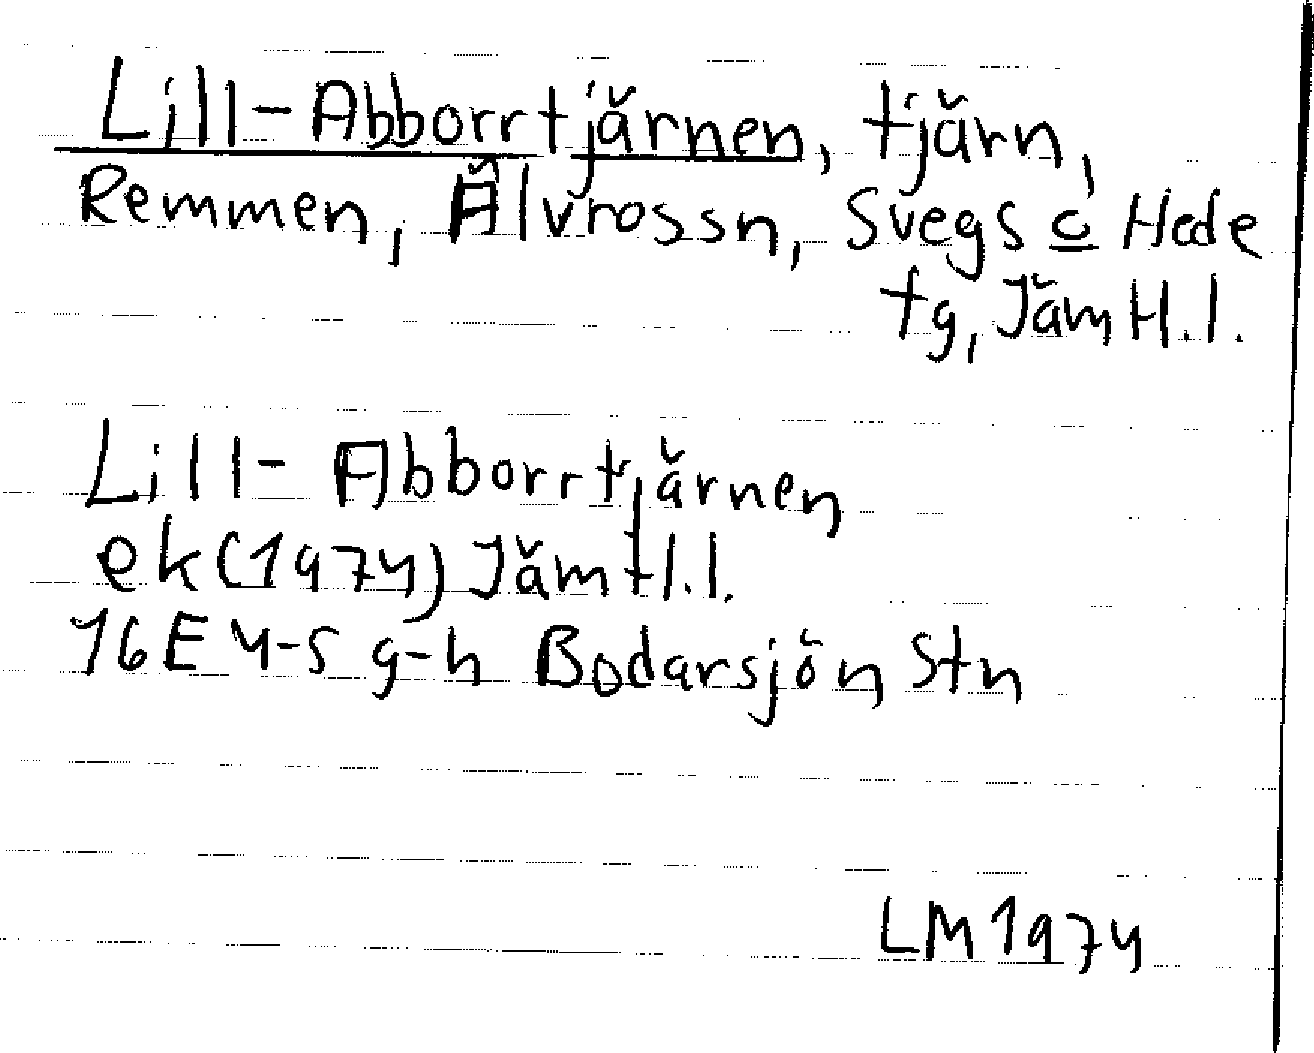 Lill-Abborrtjärnen, tjärn,
Remmen, Älvrossn, Svegs c Hede
tg, Jämtl.l.
Lill-Abborrtjärnen
ek(1974) Jämtl.l.
16E 4-5 g-h Bodarsjön Stn
LM 1974